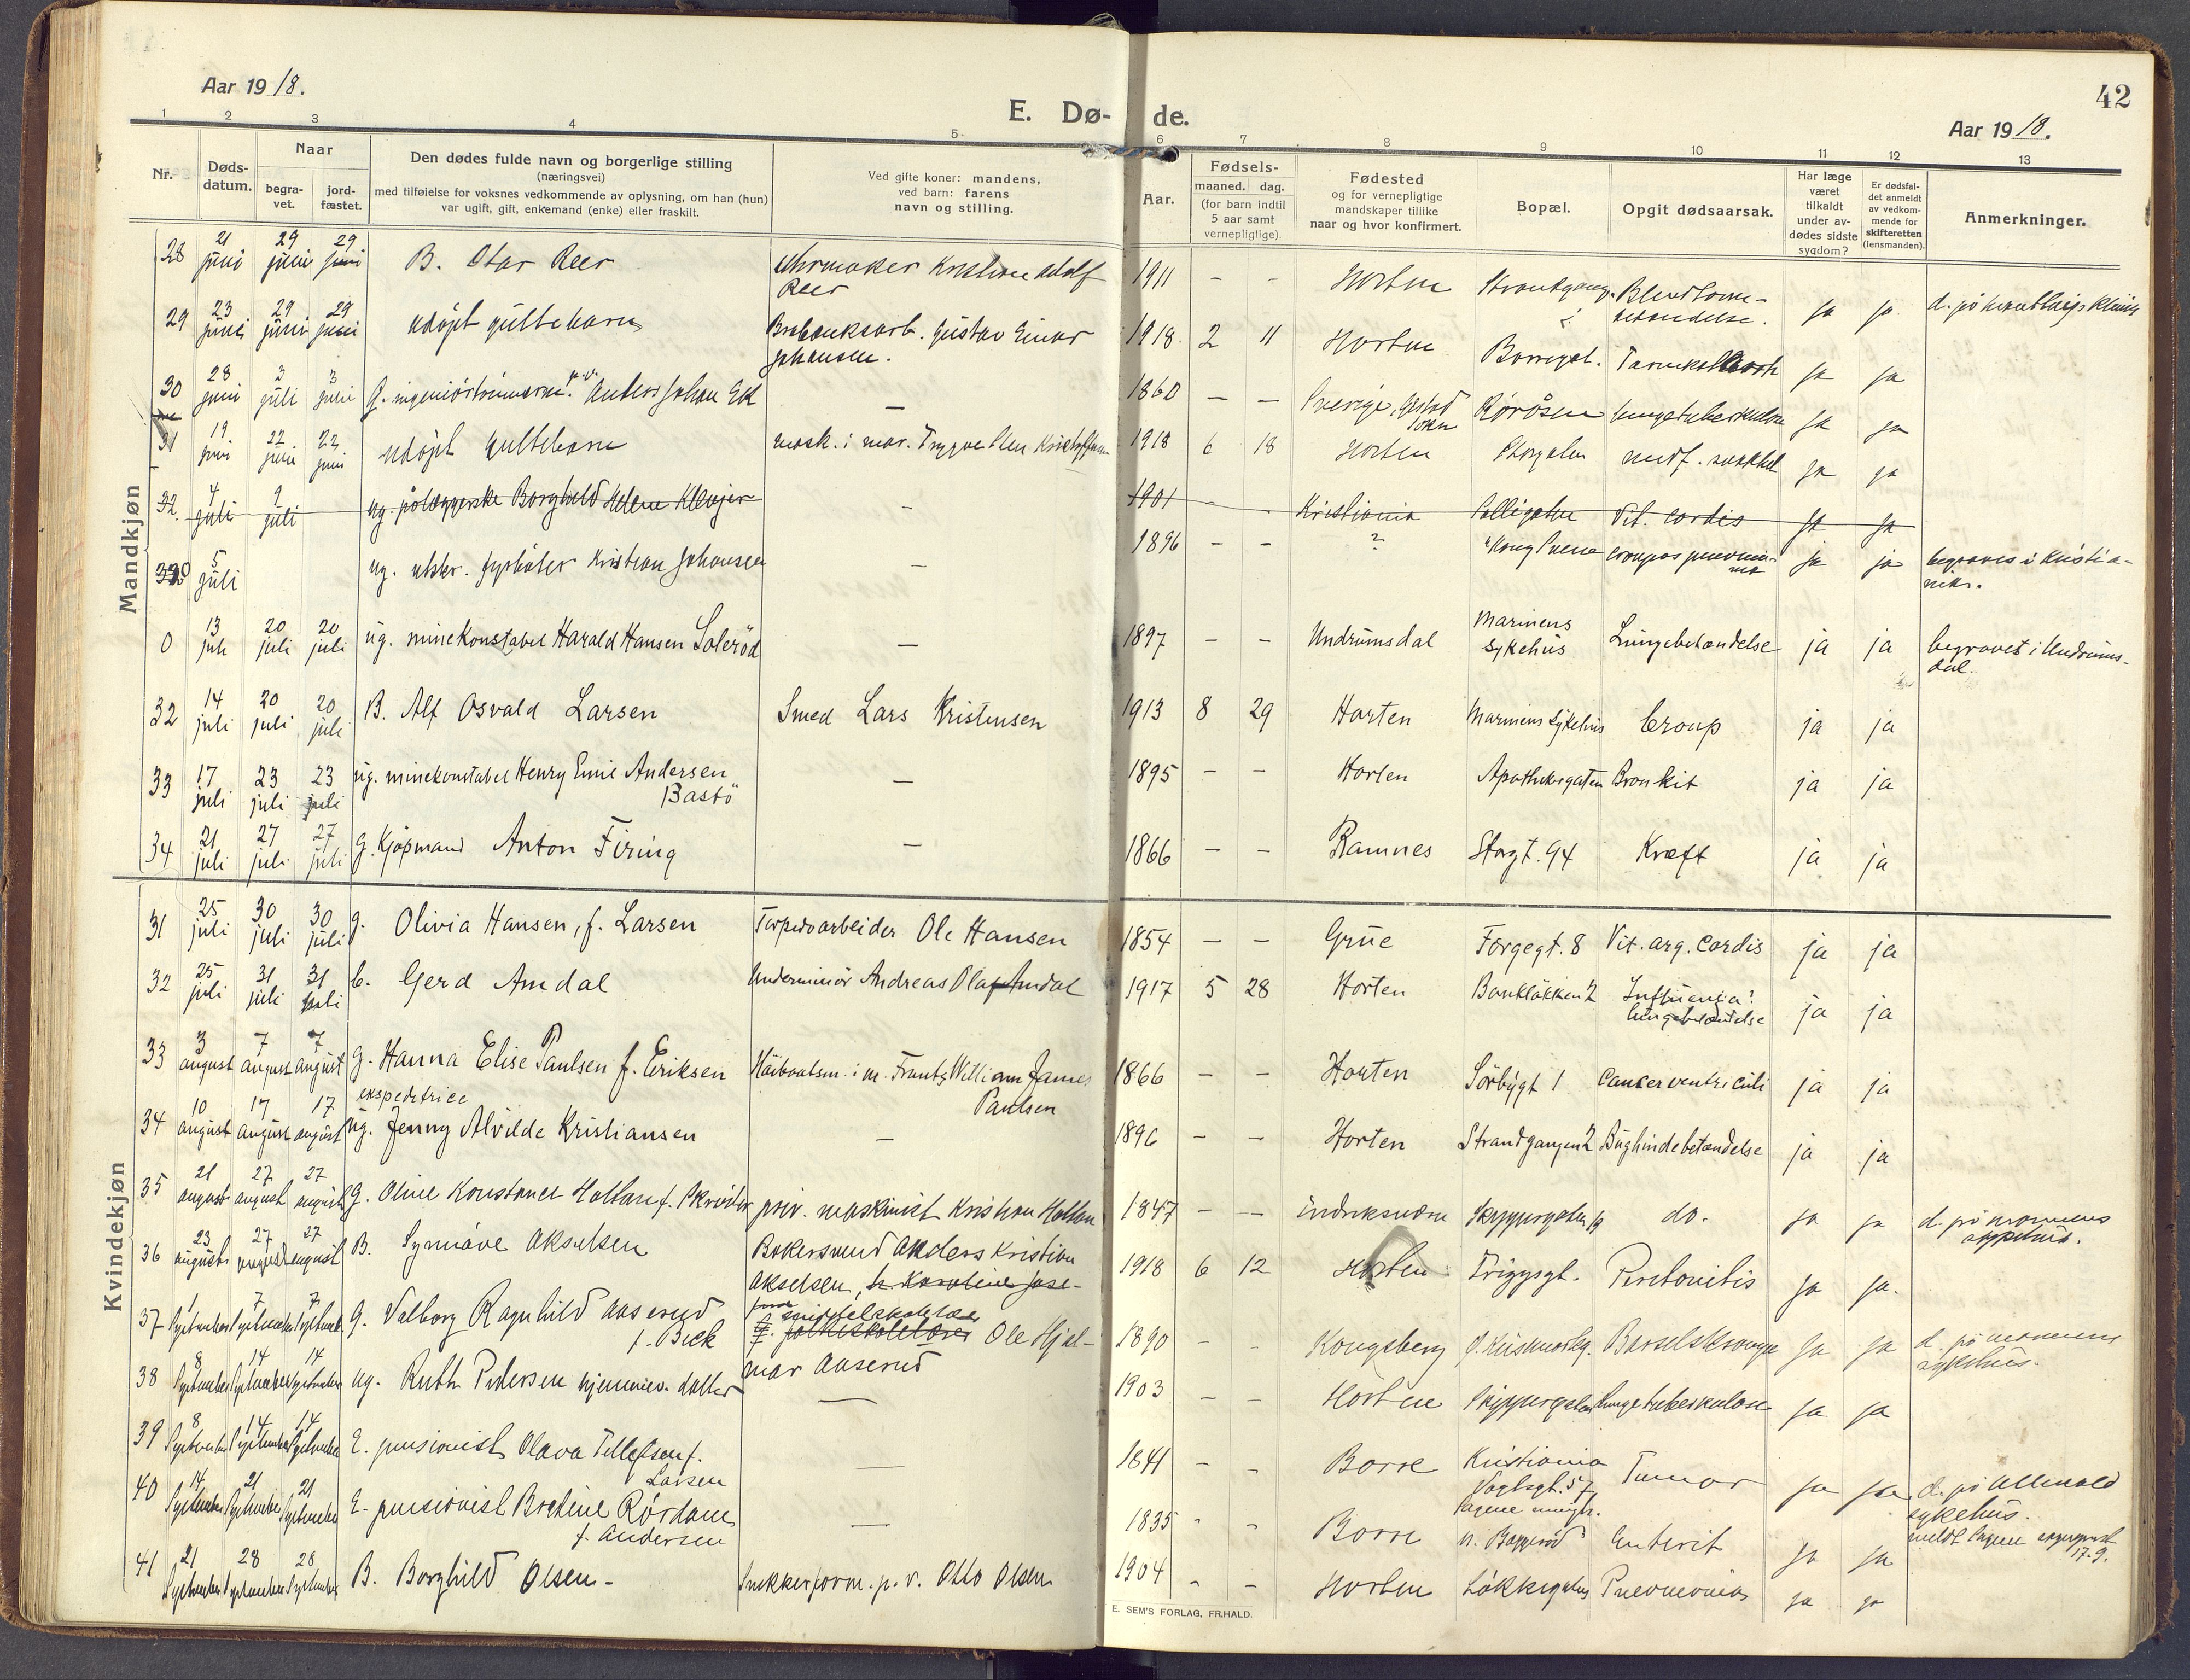 42
Aar 19 18.
E. Dø- de.
Aar 19 18.
1 2 3 4 5 6 7 8 9 10 11 12 13
Nr.
Døds-
datum.
Naar
begra-
vet.
jord-
fæstet.
Den dødes fulde navn og borgerlige stilling
(næringsvei)
med tilføielse for voksnes vedkommende av oplysning, om han (hun)
var ugift, gift, enkemand (enke) eller fraskilt.
Ved gifte koner: mandens,
ved barn: farens
navn og stilling.
Aar.
Fødsels-
maaned. dag.
(for barn indtil
5 aar samt
vernepligtige).
Fødested
og for vernepligtige
mandskaper tillike
naar og hvor konfirmert.
Bopæl.
Opgit dødsaarsak.
Har læge
været
tilkaldt
under av-
dødes sidste
sygdom?
Er dødsfal-
det anmeldt
av vedkom-
mende for
skifteretten
(lensmanden).
Anmerkninger.
Mandkjøn
28 21 juni 29 juni 29 juni B. Otar Reer Uhrmaker Kristian Adolf Reer 1911 - - Horten ja ja
29 23 juni 29 juni 29 juni udøpt guttebarn Gustav Einar Johansen. 1918 2 11 Horten Borregt. ja ja
30 28 juni 3 juli 3 juli G. Anders Johan Ek — 1860 - - Sverige, Røråsen lungetuberkulose ja ja
31 19 juni 22 juni 22 juni udøpt guttebarn mask. i mar. Trygve 1918 6 18 Horten Storgaten medf. ja ja
32. 4 juli 9 juli ug. Borghild Helene Klevjer - 1901 - - Kristiania Vit. cordis ja ja
0 5 juli ug. Kristian Johansen - 1896 - - ? ja ja begraves i Kristia-
nia.
0 13 juli 20 juli 20 juli ug. minekonstabel Harald Hansen Solerød — 1897 - - Undrumsdal Marinens sykehus Lungebetændelse ja ja begravet i Undrums-
dal.
32 14 juli 20 juli 20 juli B. Alf Osvald Larsen Smed Lars Kristensen 1913 8 29 Horten Marinens Sykehus Croup ja ja
33 17 juli 23 juli 23 juli ug. minekonstabel Henry Emil Andersen Bastö — 1895 - - Horten Apothekergaten Bronkit ja ja
34 21 juli 27 juli 27 juli g. Kjøpmand Anton Firing — 1866 - - Ramnes Storgt. 94 Kræft ja ja
Kvindekjøn
31 25 juli 30 juli 30 juli g. Olivia Hansen, f. Larsen Torpedoarbeider Ole Hansen 1854 - - Grue Forgegt. 8 Vit. org. cordis ja ja
32 25 juli 31 juli 31 juli b. Gerd Amdal Underminör Andreas Olaf Amdal 1917 5 28 Horten Bankløkken 2 Influenza: lungebetændelse ja ja
33 3 august 7 august 7 august g. Hanna Elise Paulsen f. Eriksen Høibaatsm. i m. Frantz William James Paulsen 1866 - - Horten Sörbygt 1 Cancer ventriculi ja ja
34 10 august 17 august 17 august ekspeditrice ug. Jenny Alvilde Kristiansen — 1896 - - Horten Strandgangen 2 Bughindebetændelse ja ja
35 21 august 27 august 27 august G. Oline Konstance Holtan f. priv. maskinist Kristian Holtan 1847 - - do. ja ja d. på marinens sykehus.
36 23 august 27 august 27 august B. Synnöve Akselsen Bakersvend Anders Kristian Akselsen, 1918 6 12 Horten Friggsgt. Peritonitis ja ja.
37 1 September 7 September 7 September g. Valborg Ragnhild Aaserud f. Bick Ole Hjal-
mar Aaserud 1890 - - Kongsberg ja ja d. på marinens sykehus.
38 8 September 14 September 14 September ug. Ruth Pedersen hjemmev. datter — 1903 - - Horten Skippergaten lungetuberkulose ja ja
39 8 September 14 September 14 September E. pensionist Olava Tellefsen f. Larsen — 1841 - - Borre Kristiania Vogtsgt. 57 Tumor ja ja d. på Ullevold sykehus.
40 14 September 21 September 21 September E. pensionist Bredine Rørdam f. Andersen — 1835 - - Borre Enterit ja ja 17-9.
41 21 September 28 September 28 September B. Borghild Olsen - Snekkerform. p. v. Otto Olsen 1904 - - Horten Løkkegaten Pneumonia ja ja
E. SEM'S FORLAG, FR.HALD.